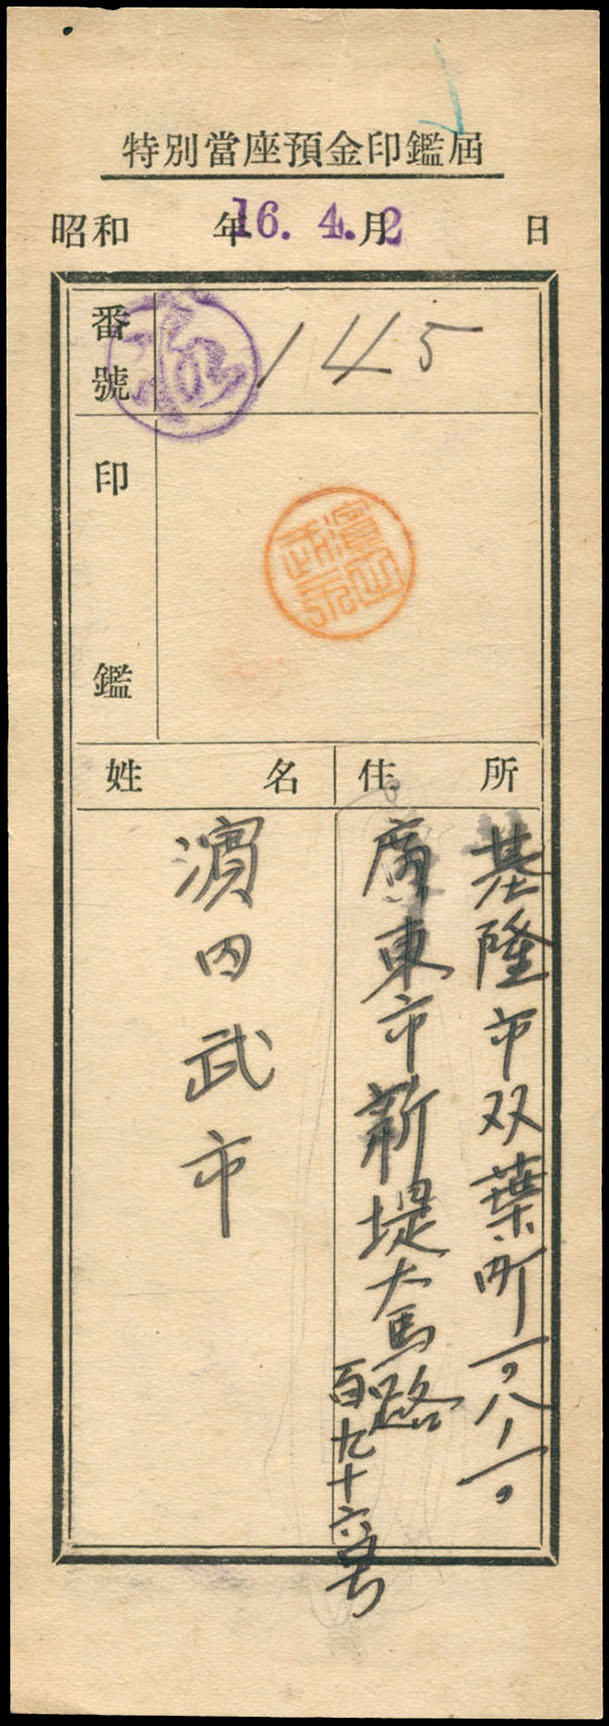 特別當座預金印鑑屆
昭和 年 月 日
16. 4. 2
番號
145
印鑑
姓名
住所
基隆市双葉町一ノ八ノ一〇
廣東市新堤大馬路
百九十六号
濵田武市